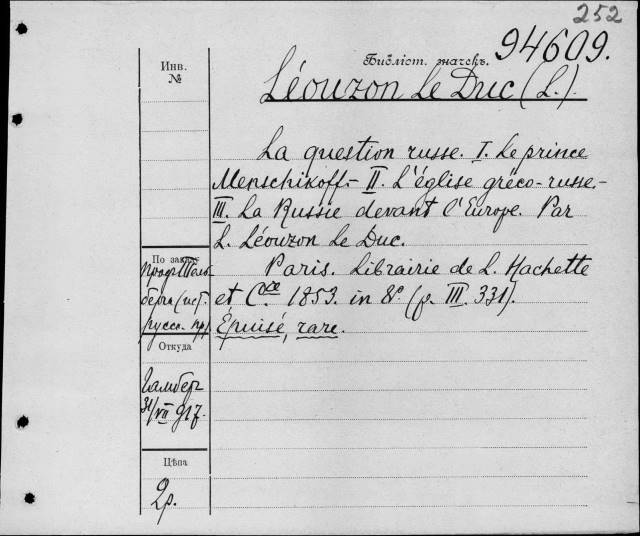 252
Инв.
№
Библіот. значекъ. 94609.
Léouzon Le Duc (L.).
La question russe. I. Le prince
Menschikoff. – II. L'église gréco-russe. –
III. La Russie devant l'Europe. Par
L. Léouzon Le Duc.
Paris. Librairie de L. Hachette
et Cie. 1853. in 8º (p. III. 331).
Épuisé, rare.
По заказу
проф. Таль-
берга (
русск. пр)
Откуда
Гамбер
31/VII 917.
Цѣна
2р.